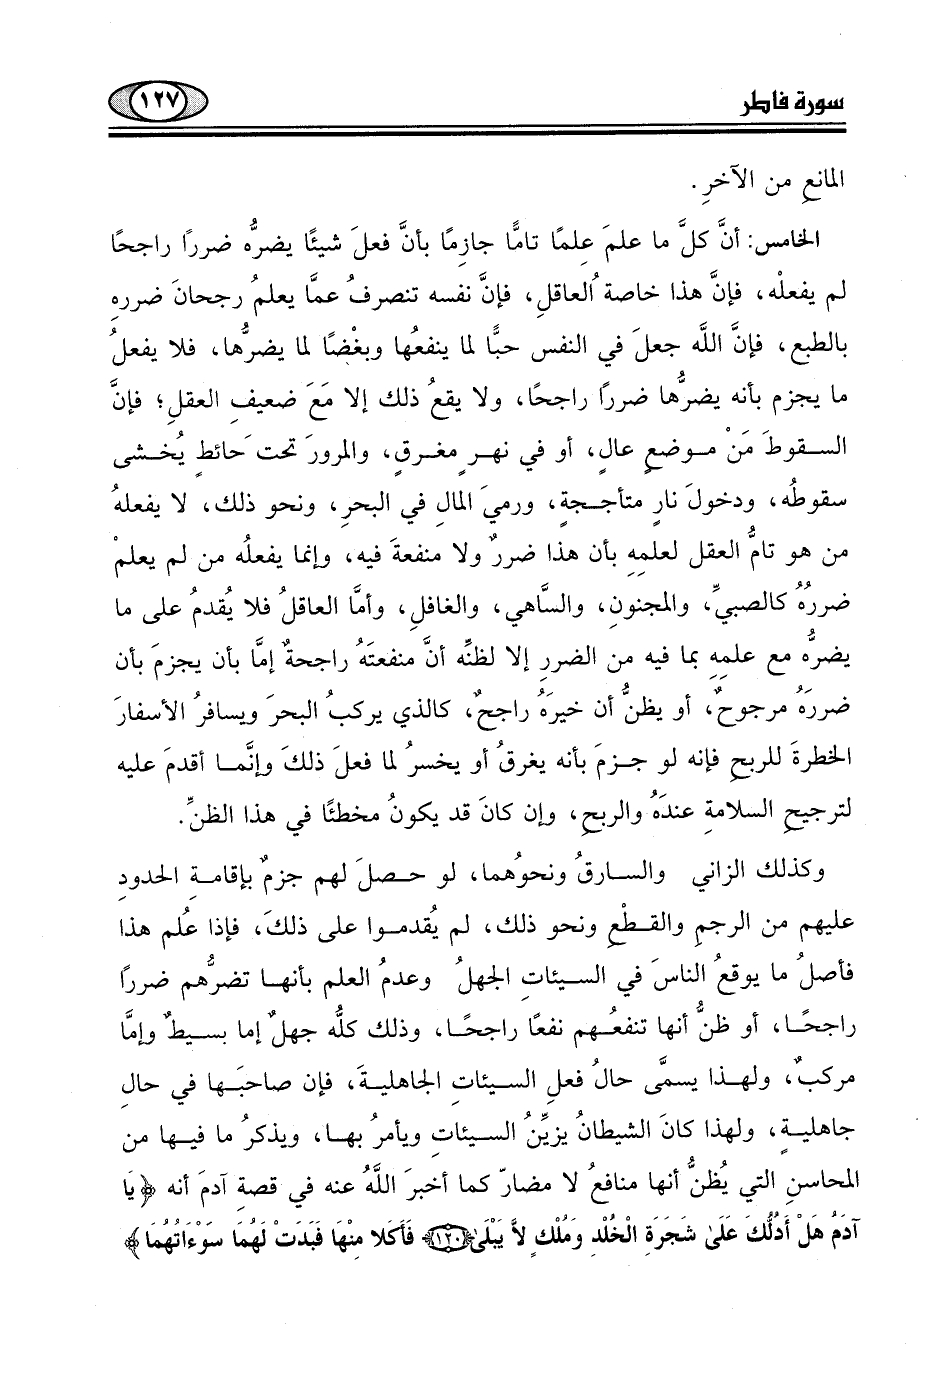 سورة فاطر
١٢٧
المانعِ من الآخرِ.
الخامس: أنَّ كلَّ ما علمَ علمًا تامًّا جازمًا بأنَّ فعلَ شيئًا يضرُّه ضررًا راجحًا
لم يفعلْه، فإنَّ هذا خاصةُ العاقلِ، فإنَّ نفسه تنصرفُ عمَّا يعلمُ رجحانَ ضررِه
بالطبعِ، فإنَّ اللَّه جعلَ في النفس حبًّا لما ينفعُها وبغْضًا لما يضرُّها، فلا يفعلُ
ما يجزم بأنه يضرُّها ضررًا راجحًا، ولا يقعُ ذلك إلا مَعَ ضعيفِ العقلِ؛ فإنَّ
السقوطَ مَنْ موضعٍ عالٍ، أو في نهرٍ مغرقٍ، والمرورَ تحت حَائطٍ يُخشى
سقوطُه، ودخولَ نارٍ متأججةٍ، ورميَ المالِ في البحرِ، ونحو ذلك، لا يفعلهُ
من هو تامُّ العقل لعلمِهِ بأن هذا ضررٌ ولا منفعةَ فيه، وإنما يفعلُه من لم يعلمْ
ضررَُهُ كالصبيِّ، والمجنونِ، والسَّاهي، والغافلِ، وأمَّا العاقلُ فلا يُقدمُ على ما
يضرُّه مع علمِهِ بما فيه من الضررِ إلا لظنِّه أنَّ منفعتَهُ راجحةٌ إمَّا بأن يجزمَ بأن
ضررَهُ مرجوحٌ، أو يظنُّ أن خيرَهُ راجحٌ، كالذي يركبُ البحرَ ويسافرُ الأسفارَ
الخطرةَ للربحِ فإنه لو جزمَ بأنه يغرقُ أو يخسرُ لما فعلَ ذلكَ وإنَّما أقدمَ عليه
لترجيحِ السلامةِ عندَهُ والربحِ، وإن كانَ قد يكونُ مخطئًا في هذا الظنِّ.
وكذلك الزاني والسارقُ ونحوُهما، لو حصلَ لهم جزمٌ بإقامةِ الحدودِ
عليهم من الرجمِ والقطْعِ ونحو ذلك، لم يُقدموا على ذلكَ، فإذا عُلم هذا
فأصلُ ما يوقعُ الناسَ في السيئاتِ الجهلُ وعدمُ العلم بأنها تضرُّهم ضررًا
راجحًا، أو ظنُّ أنها تنفعُهم نفعًا راجحًا، وذلك كلُّه جهلٌ إما بسيطٌ وإمَّا
مركبٌ، ولهذا يسمَّى حالُ فعلِ السيئاتِ الجاهليةَ، فإن صاحبَها في حالِ
جاهليةٍ، ولهذا كانَ الشيطانُ يزيِّنُ السيئاتِ ويأمرُ بها، ويذكرُ ما فيها من
المحاسنِ التي يُظنُّ أنها منافعُ لا مضارّ كما أخبرَ اللَّهُ عنه في قصةِ آدمَ أنه ﴿يَا
آدَمُ هَلْ أَدُلُّكَ عَلَىٰ شَجَرَةِ الْخُلْدِ وَمُلْكٍ لاَّ يَبْلَىٰ﴿١٢٠﴾ فَأَكَلا مِنْهَا فَبَدَتْ لَهُمَا سَوْءَاتُهُمَا﴾